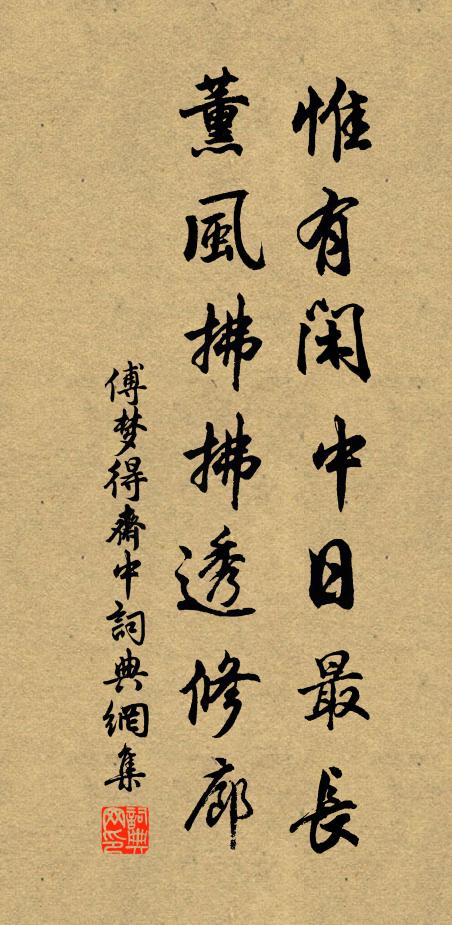 惟有閑中日最長
薰風拂拂透修廊
傅梦得齋中詞典網集
詞典网印